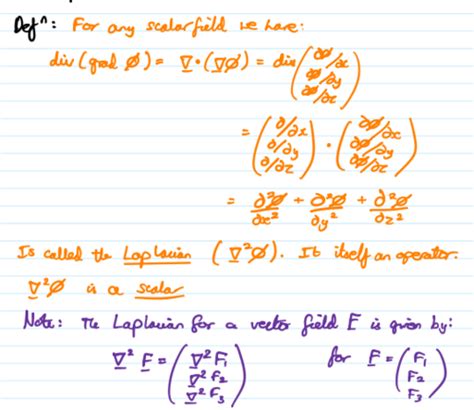 Defⁿ: For any scalar field we have:
div (grad ∅) = ∇ · (∇∅) = div (∂∅/∂x
∂∅/∂y
∂∅/∂z)
= (∂/∂x
∂/∂y
∂/∂z) · (∂∅/∂x
∂∅/∂y
∂∅/∂z)
= ∂²∅/∂x² + ∂²∅/∂y² + ∂²∅/∂z²
Is called the Laplacian (∇²∅). It itself an operator.
∇²∅ is a scalar
Note: The Laplacian for a vector field F is given by:
∇² F = (∇²F₁
∇²F₂
∇²F₃) for F = (F₁
F₂
F₃)